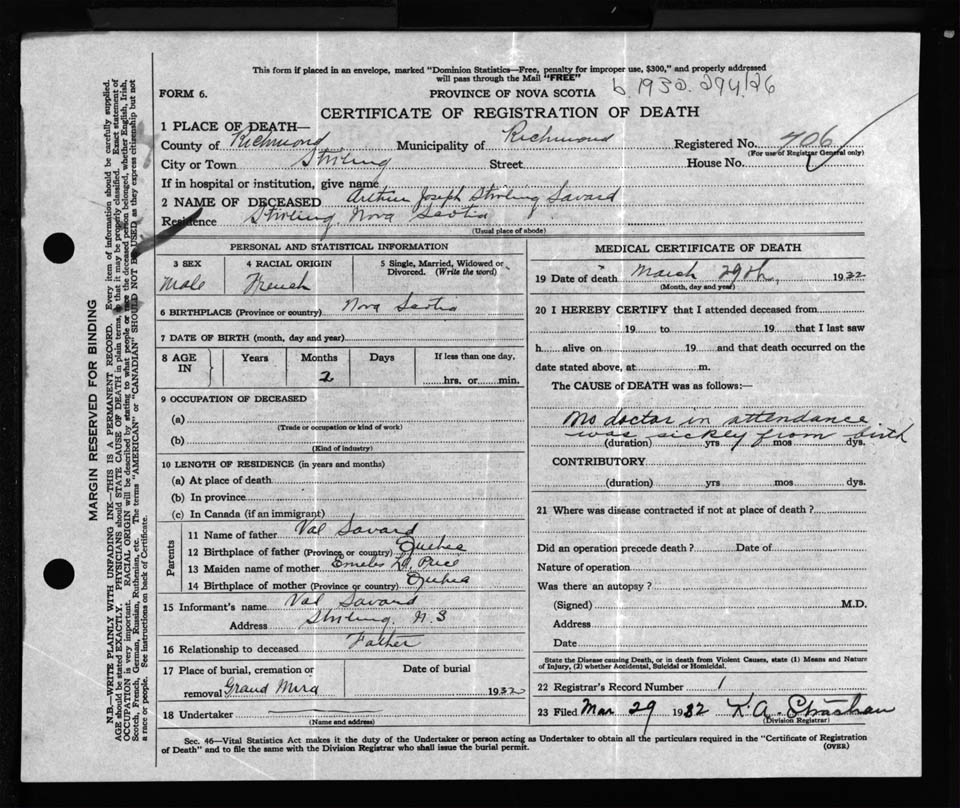 This form if placed in an envelope, marked "Dominion Statistics—Free, penalty for improper use, $300," and properly addressed
will pass through the Mail "FREE"
b 1932. 294126
FORM 6.
PROVINCE OF NOVA SCOTIA
CERTIFICATE OF REGISTRATION OF DEATH
1 PLACE OF DEATH—
County of Richmond Municipality of Richmond Registered No. 406
(For use of Registrar General only)
City or Town Stirling Street House No.
If in hospital or institution, give name
2 NAME OF DECEASED Arthur Joseph Stirling Savard
Residence Stirling Nova Scotia
(Usual place of abode)
PERSONAL AND STATISTICAL INFORMATION
3 SEX 4 RACIAL ORIGIN 5 Single, Married, Widowed or Divorced. (Write the word)
Male French
6 BIRTHPLACE (Province or country) Nova Scotia
7 DATE OF BIRTH (month, day and year)
8 AGE IN Years Months Days If less than one day,
2 hrs. or min.
9 OCCUPATION OF DECEASED
(a)
(Trade or occupation or kind of work)
(b)
(Kind of industry)
10 LENGTH OF RESIDENCE (in years and months)
(a) At place of death
(b) In province
(c) In Canada (if an immigrant)
Parents
11 Name of father Val Savard
12 Birthplace of father (Province or country) Quebec
13 Maiden name of mother Price
14 Birthplace of mother (Province or country) Quebec
15 Informant's name Val Savard
Address Stirling, N.S
16 Relationship to deceased Father
17 Place of burial, cremation or Date of burial
removal Grand Mira 1932
18 Undertaker
(Name and address)
MEDICAL CERTIFICATE OF DEATH
19 Date of death March 29th, 1932
(Month, day and year)
20 I HEREBY CERTIFY that I attended deceased from
19 to 19 that I last saw
h alive on 19 and that death occurred on the
date stated above, at m.
The CAUSE of DEATH was as follows:—
No doctor in attendance
was sickly from birth
(duration) yrs mos dys.
CONTRIBUTORY
(duration) yrs mos dys.
21 Where was disease contracted if not at place of death?
Did an operation precede death? Date of
Nature of operation
Was there an autopsy?
(Signed) M.D.
Address
Date
State the Disease causing Death, or in death from Violent Causes, state (1) Means and Nature
of Injury, (2) whether Accidental, Suicidal or Homicidal.
22 Registrar's Record Number 1
23 Filed Mar 29 1932 K. A. Strachan
(Division Registrar)
Sec. 46—Vital Statistics Act makes it the duty of the Undertaker or person acting as Undertaker to obtain all the particulars required in the "Certificate of Registration
of Death" and to file the same with the Division Registrar who shall issue the burial permit.
(OVER)
MARGIN RESERVED FOR BINDING
N.B.—WRITE PLAINLY WITH UNFADING INK—THIS IS A PERMANENT RECORD. Every item of information should be carefully supplied.
AGE should be stated EXACTLY. PHYSICIANS should STATE CAUSE OF DEATH in plain terms, so that it may be properly classified. Exact statement of
OCCUPATION is very important. RACIAL ORIGIN will be described by stating to what people or race the deceased person belonged, whether English, Irish,
Scotch, French, German, Russian, Ruthenian, etc. The terms "AMERICAN" or "CANADIAN" SHOULD NOT BE USED as they express citizenship but not
a race or people. See instructions on back of Certificate.